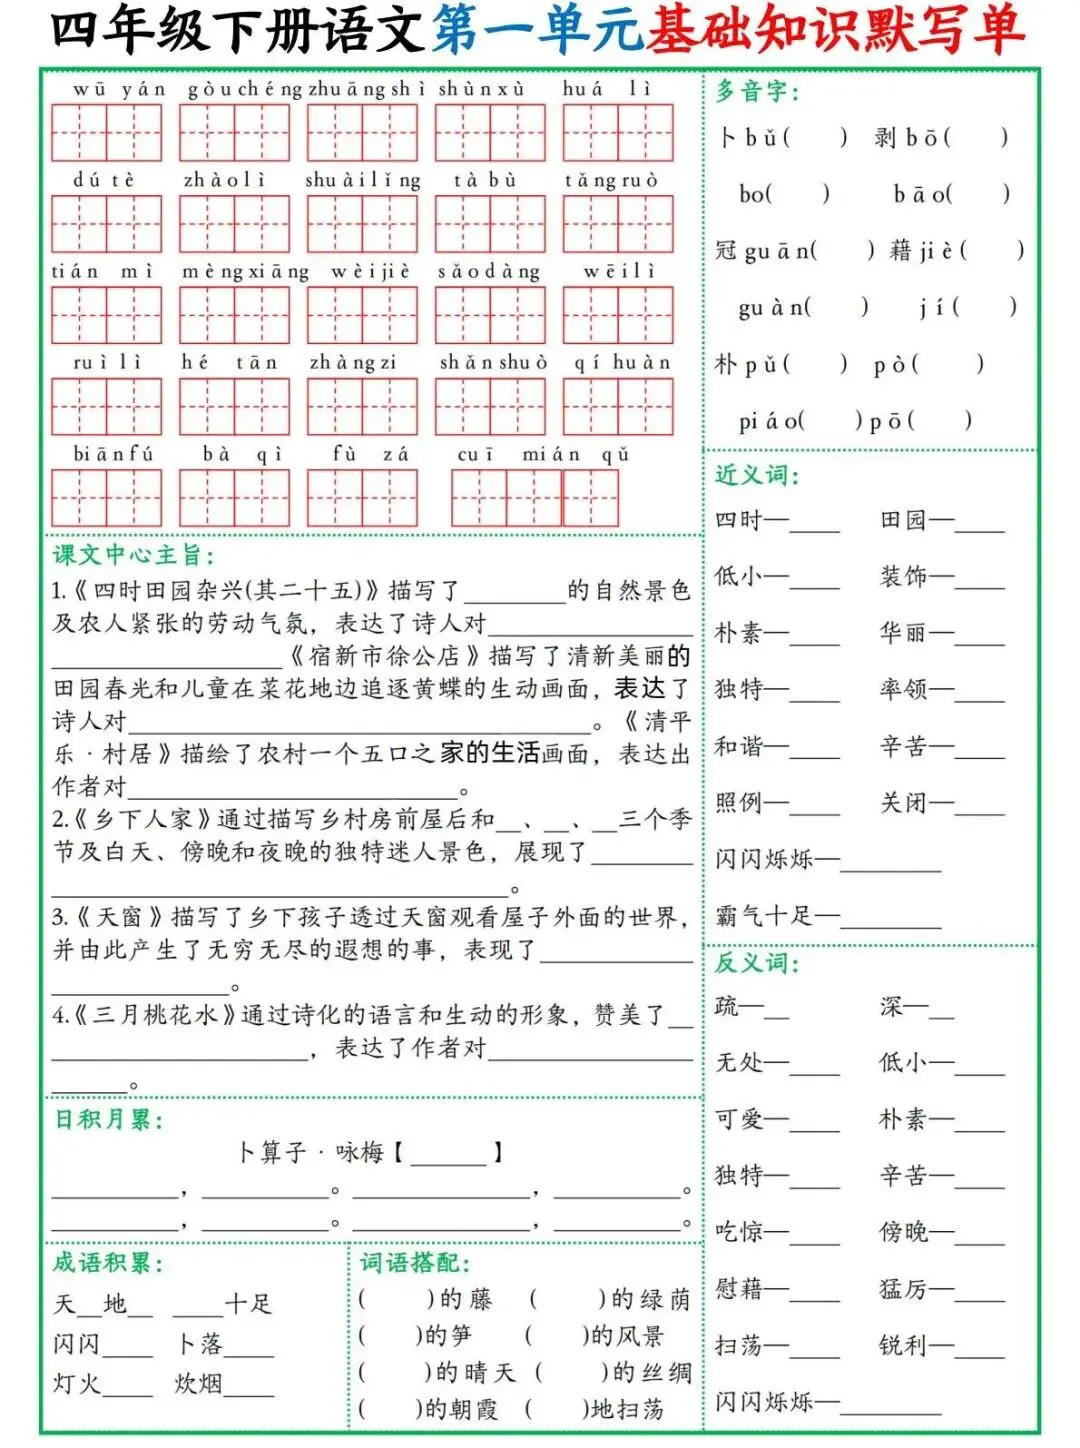 四年级下册语文第一单元基础知识默写单
wū yán gòu chéng zhuāng shì shùn xù huá lì
dú tè zhào lì shuài lǐng tà bù tǎng ruò
tián mì mèng xiāng wèi jiè sǎo dàng wēi lì
ruì lì hé tān zhàng zi shǎn shuò qí huàn
biān fú bà qì fù zá cuī mián qǔ
课文中心主旨：
1.《四时田园杂兴(其二十五)》描写了________的自然景色
及农人紧张的劳动气氛，表达了诗人对________________
__________________《宿新市徐公店》描写了清新美丽的
田园春光和儿童在菜花地边追逐黄蝶的生动画面，表达了
诗人对____________________________________。《清平
乐·村居》描绘了农村一个五口之家的生活画面，表达出
作者对__________________________。
2.《乡下人家》通过描写乡村房前屋后和__、__、__三个季
节及白天、傍晚和夜晚的独特迷人景色，展现了________
____________________________________。
3.《天窗》描写了乡下孩子透过天窗观看屋子外面的世界，
并由此产生了无穷无尽的遐想的事，表现了____________
______________。
4.《三月桃花水》通过诗化的语言和生动的形象，赞美了__
____________________，表达了作者对________________
______。
日积月累：
卜算子·咏梅【______】
__________，__________。______________，__________。
__________，__________。______________，__________。
成语积累：
天__地__ ____十足
闪闪____ 卜落____
灯火____ 炊烟____
词语搭配：
( )的藤 ( )的绿荫
( )的笋 ( )的风景
( )的晴天 ( )的丝绸
( )的朝霞 ( )地扫荡
多音字：
卜bǔ( ) 剥bō( )
bo( ) bāo( )
冠guān( ) 藉jiè( )
guàn( ) jí( )
朴pǔ( ) pò( )
piáo( ) pō( )
近义词：
四时—____ 田园—____
低小—____ 装饰—____
朴素—____ 华丽—____
独特—____ 率领—____
和谐—____ 辛苦—____
照例—____ 关闭—____
闪闪烁烁—________
霸气十足—________
反义词：
疏—__ 深—__
无处—____ 低小—____
可爱—____ 朴素—____
独特—____ 辛苦—____
吃惊—____ 傍晚—____
慰藉—____ 猛厉—____
扫荡—____ 锐利—____
闪闪烁烁—________